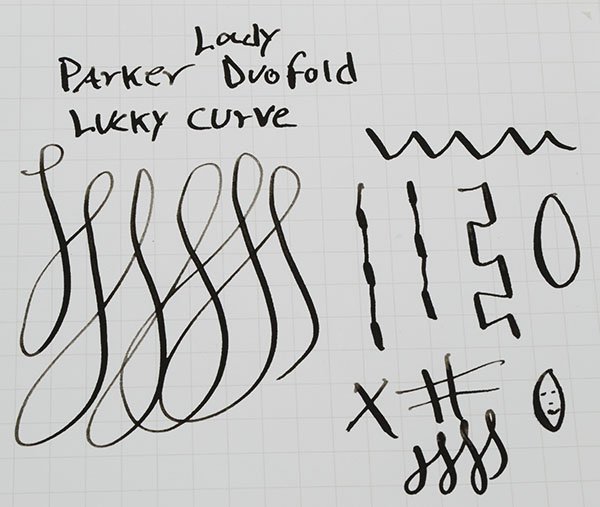 Lady
Parker Duofold
Lucky Curve
X #